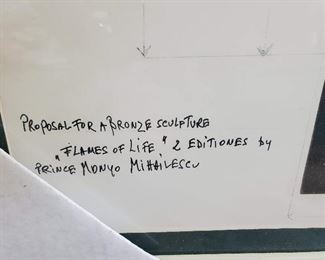 PROPOSAL FOR A BRONZE SCULPTURE
"FLAMES OF LIFE" 2 EDITIONES by
PRINCE MONYO MIHAILESCU